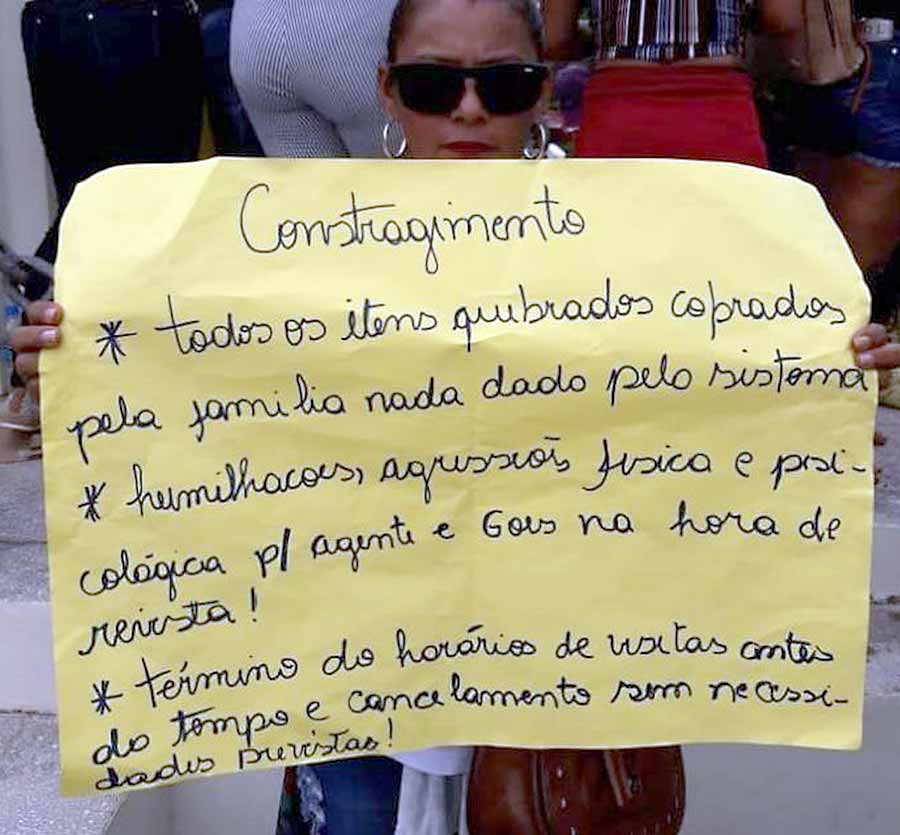 Constragimento
* todos os itens quebrados coprados
pela familia nada dado pelo sistema
* humilhacoes, agressões fisica e psi-
cológica p/ agente e Goes na hora de
revista!
* término do horários de visitas antes
do tempo e cancelamento sem necessi-
dades previstas!